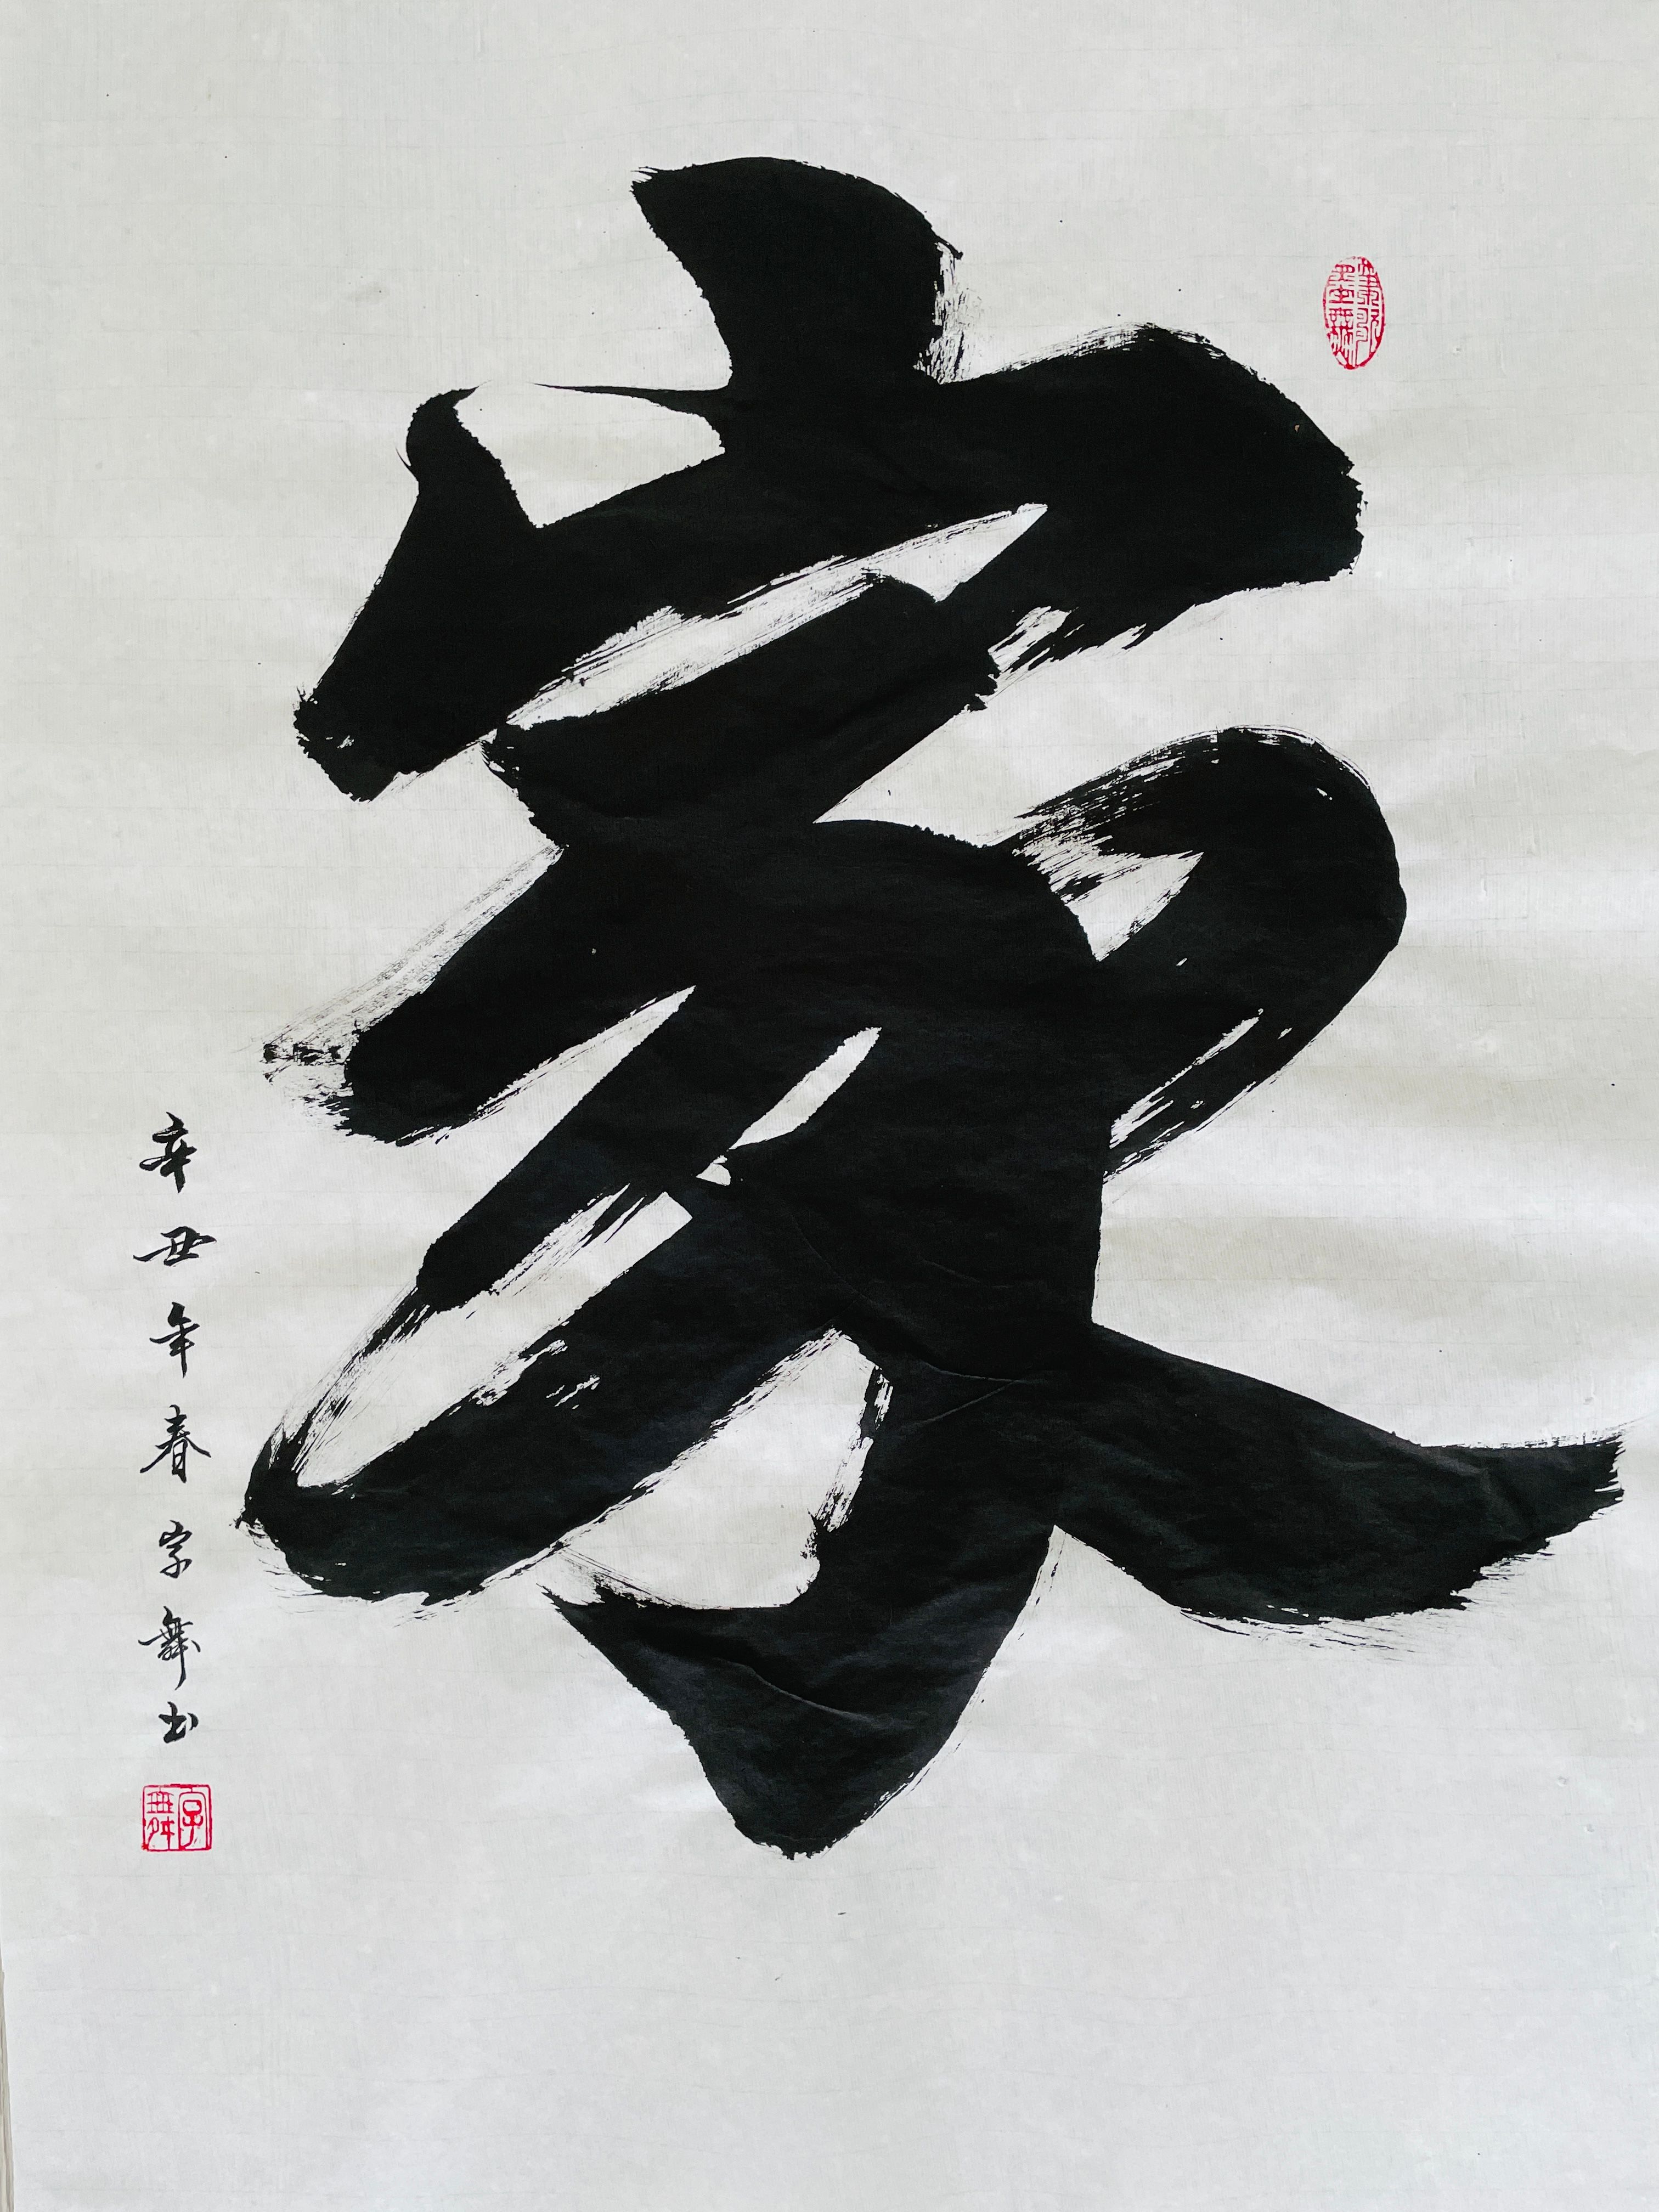 家
辛丑年春字舞书
字舞